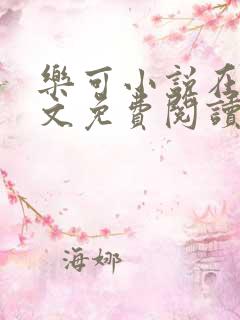 樂可小說在
文免費閱讀
海娜